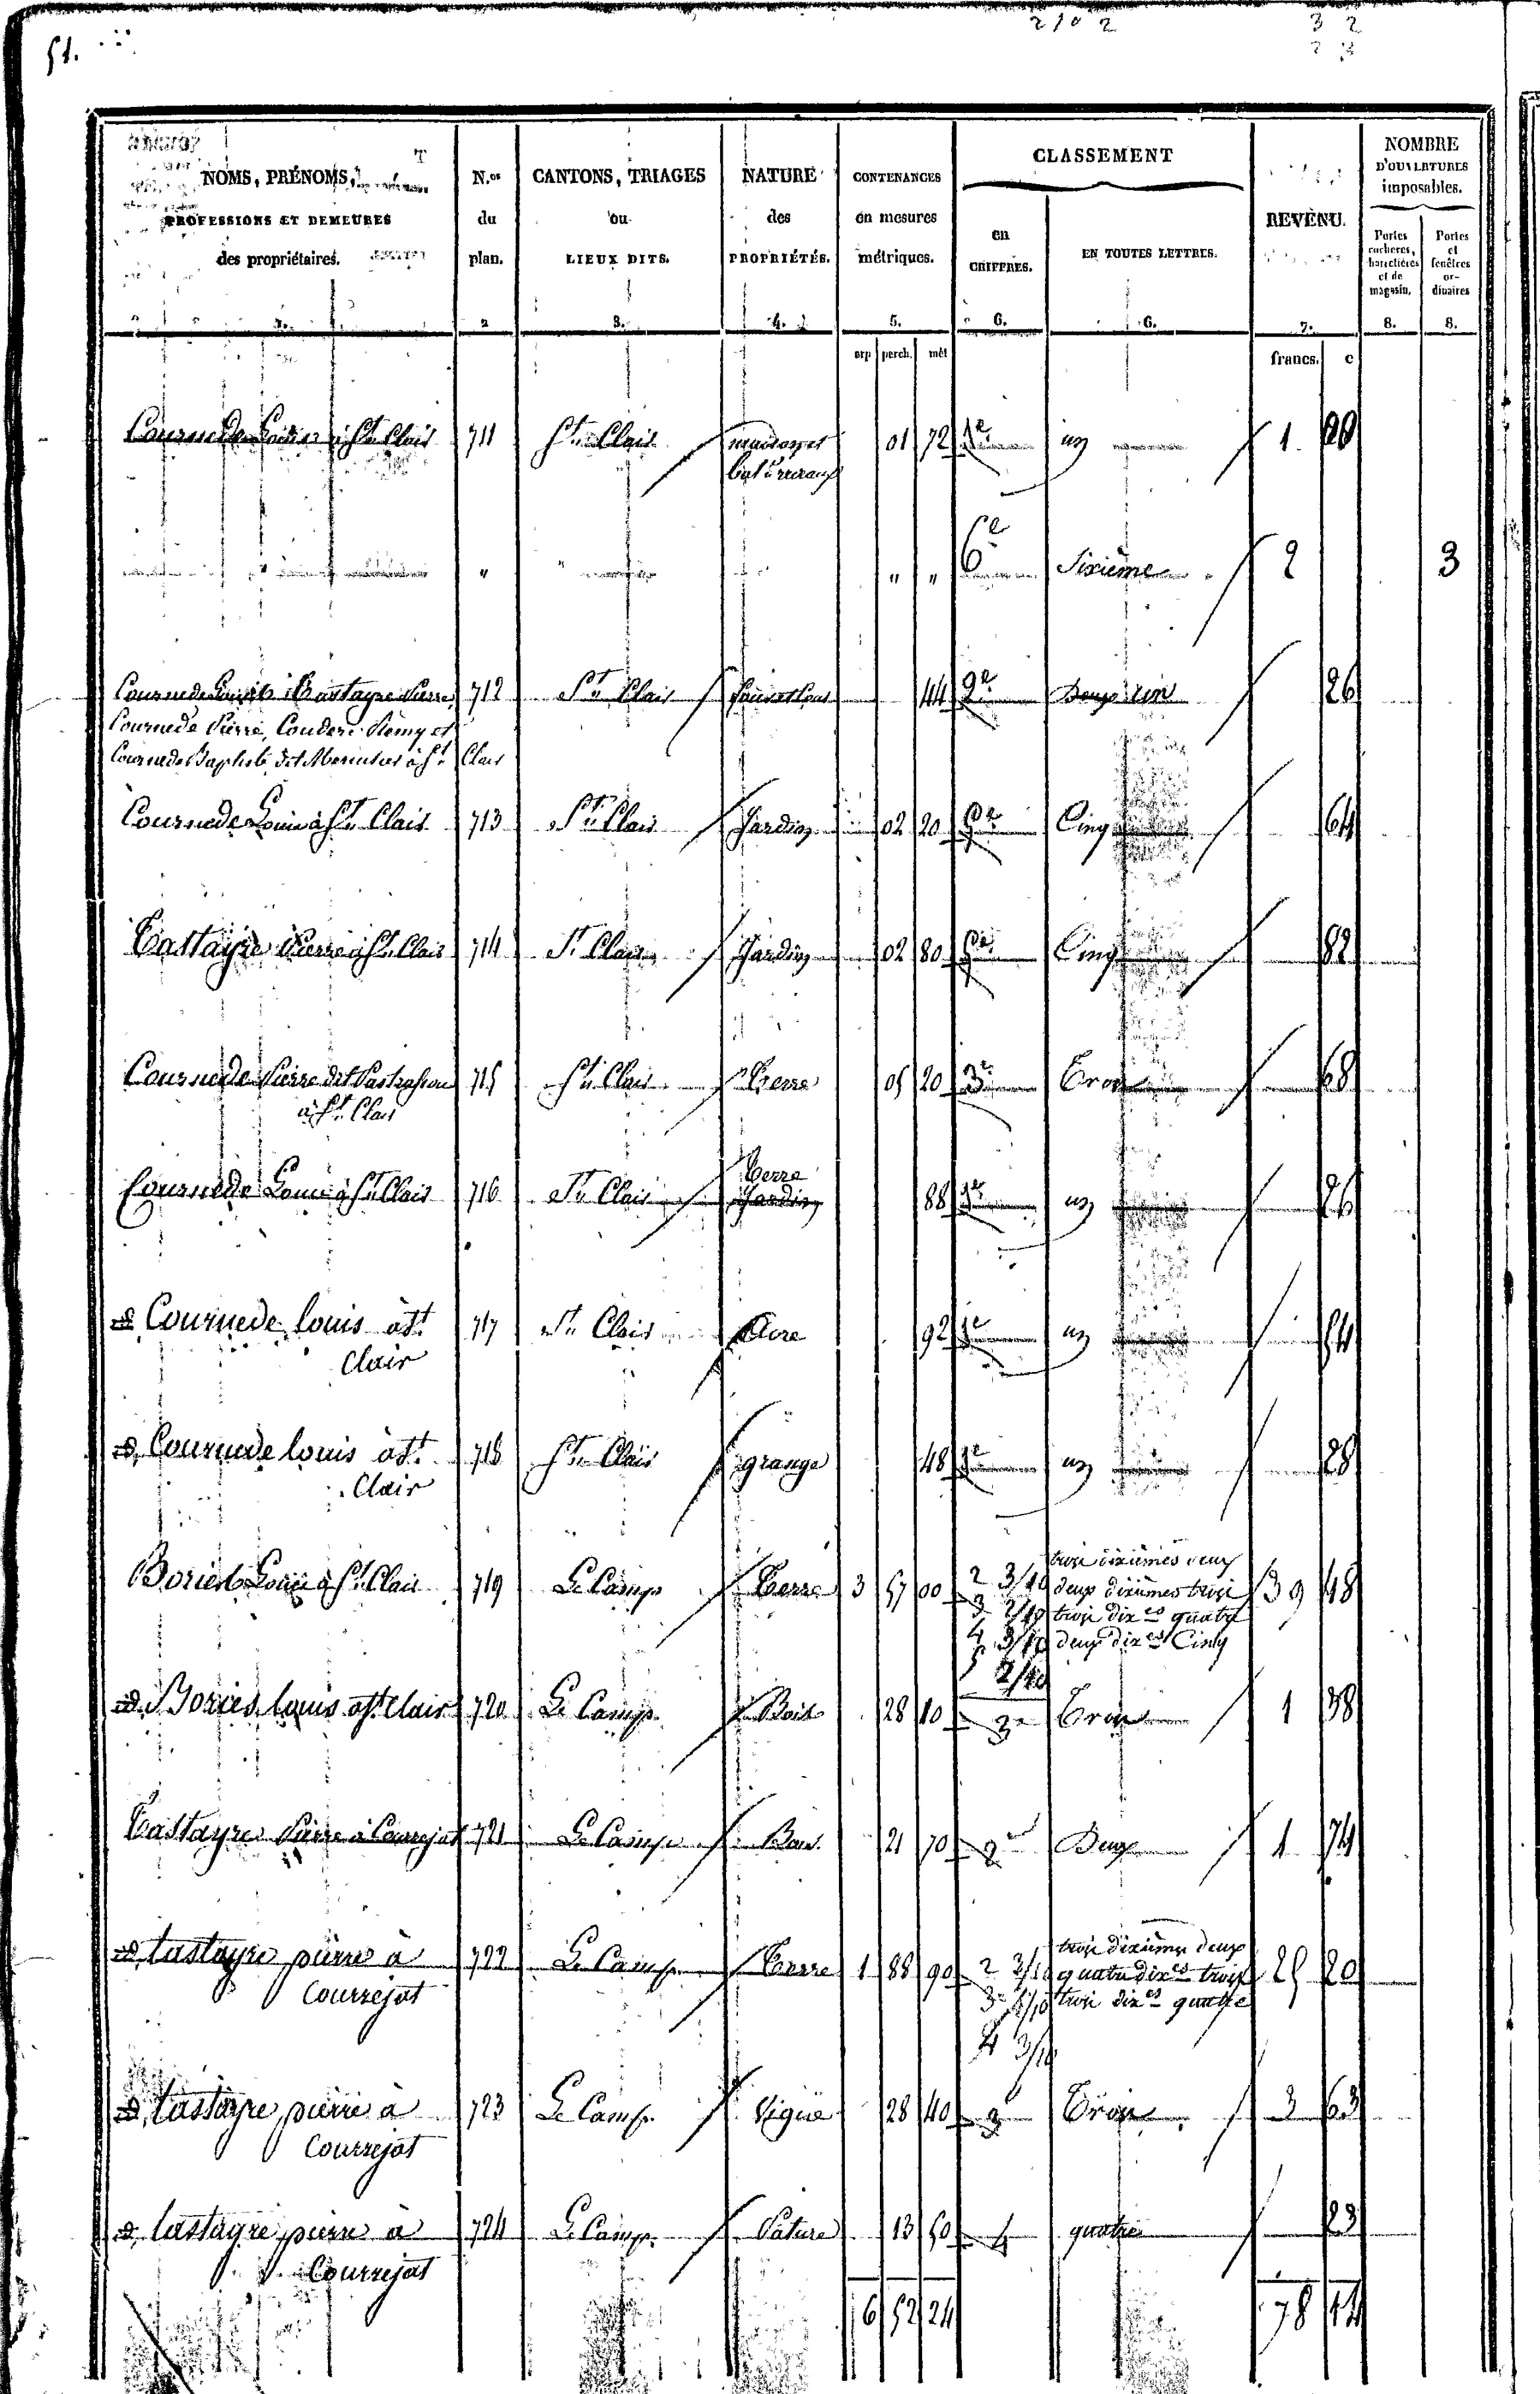 51.
2102
3 2
NOMS, PRÉNOMS,
PROFESSIONS ET DEMEURES
des propriétaires.
N.os
du
plan.
CANTONS, TRIAGES
ou
LIEUX DITS.
NATURE
des
PROPRIÉTÉS.
CONTENANCES
en mesures
métriques.
CLASSEMENT
en
CHIFFRES.
EN TOUTES LETTRES.
REVENU.
NOMBRE
D'OUVERTURES
imposables.
Portes
cocheres,
charretières
et de
magasin.
Portes
et
fenêtres
or-
dinaires
2 3. 4. 5. 6. 6. 7. 8. 8.
arp perch. mèt francs. c
Cournede Louis à St Clair 711 St Clair maison et 01 72 1e un 1. 20
" " " 6e Sixième 2 3
Cournede Louis Tastayre Pierre 712 St Clair 44 2e 26
Cournede Pierre, Couderc Rémy et
Cournede Baptiste dit Menuisier à St Clair
Cournede Louis à St Clair 713 St Clair Jardin 02 20 Cinq 64
Tastayre Pierre à St Clair 714 St Clair Jardin 02 80 Cinq 82
Cournede Pierre dit 715 St Clair Terre 05 20 3e Trois 68
à St Clair
Terre
Cournede Louis à St Clair 716 St Clair Jardin 88 1e un 26
d. Cournede louis à St 717 St Clair Aire 92 1e un 54
Clair
d. Cournede louis à St 718 St Clair grange 48 1e un 28
Clair
trois dixièmes deux
Bories Louis à St Clair 719 Le Camp Terre 3 57 00 2 3/10 deux dixièmes trois 39 48
3 2/10 trois dixes quatre
4 3/10 deux dixes Cinq
5 2/10
d. Bories louis à St Clair 720 Le Camp Bois 28 10 3e Trois 1 38
Tastayre Pierre à Courrejat 721 Le Camp Bois 21 70 2e Deux 1 74
trois dixièmes deux
d. tastayre pierre à 722 Le Camp Terre 1 88 90 2 3/10 quatre dixes trois 25 20
Courrejat 3 4/10 trois dixes quatre
4 3/10
d. tastayre pierre à 723 Le Camp Vigne 28 40 3 Trois 3 63
Courrejat
d. tastayre pierre à 724 Le Camp Pature 13 50 4 quatre 23
Courrejat
6 52 24 78 44